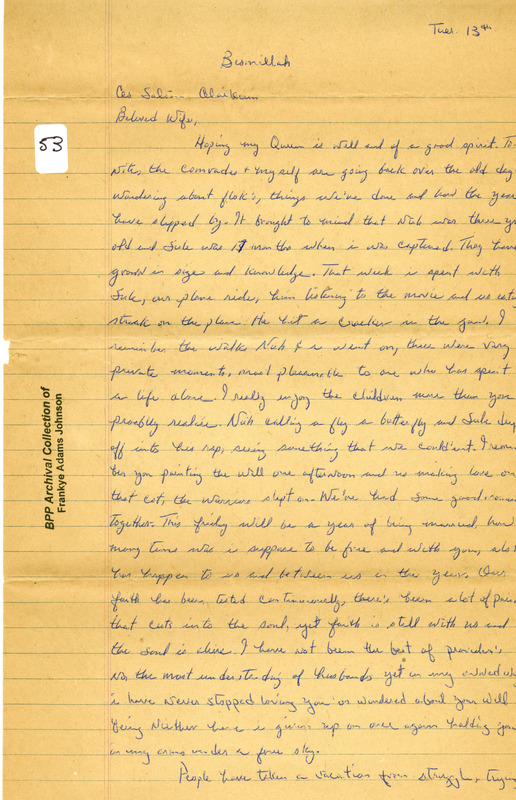 Tues. 13th
Bismillah
Ces Salim Alaikum
Beloved Wife,
53
Hoping my Queen is well and of a good spirit. To-
Nite, the comrades & myself are going back over the old day
wondering about folk's, things we've done and how the years
have slipped by. It brought to mind that Nah was three y
old and Sule was 17 months when i was captured. They have
grown in size and knowledge. That week is spent with
Sule, our plane ride, him listening to the movie and us eatin
streak on the plane. He hit a cracker in the jaw. I
remember the walk Nah & i went on, those were very
private moments, most pleasurable to one who has spent
a life alone. I really enjoy the children more than you
proablly realize. Nah calling a fly a butterfly and Sule
off into his rap, seeing something that we could'nt. I rem
ber you painting the wall one afternoon and us making love on
that cot, the warriors slept on. We've had some good
together. This friday will be a year of being married, how
many times was i suppose to be free and with you, alot
has happen to us and between us in the year. Our
faith has been tested continuously, there's been alot of pain
that cuts into the soul, yet faith is still with us and
the soul is alive. I have not been the best of provider's
No, the most understanding of husbands yet in my
i have Never stopped loving you or wondered about your well
Being Niether have i given up on once again holding you
in my arms under a free sky.
People have taken a vacation from struggle, trying
BPP Archival Collection of
Frankye Adams Johnson